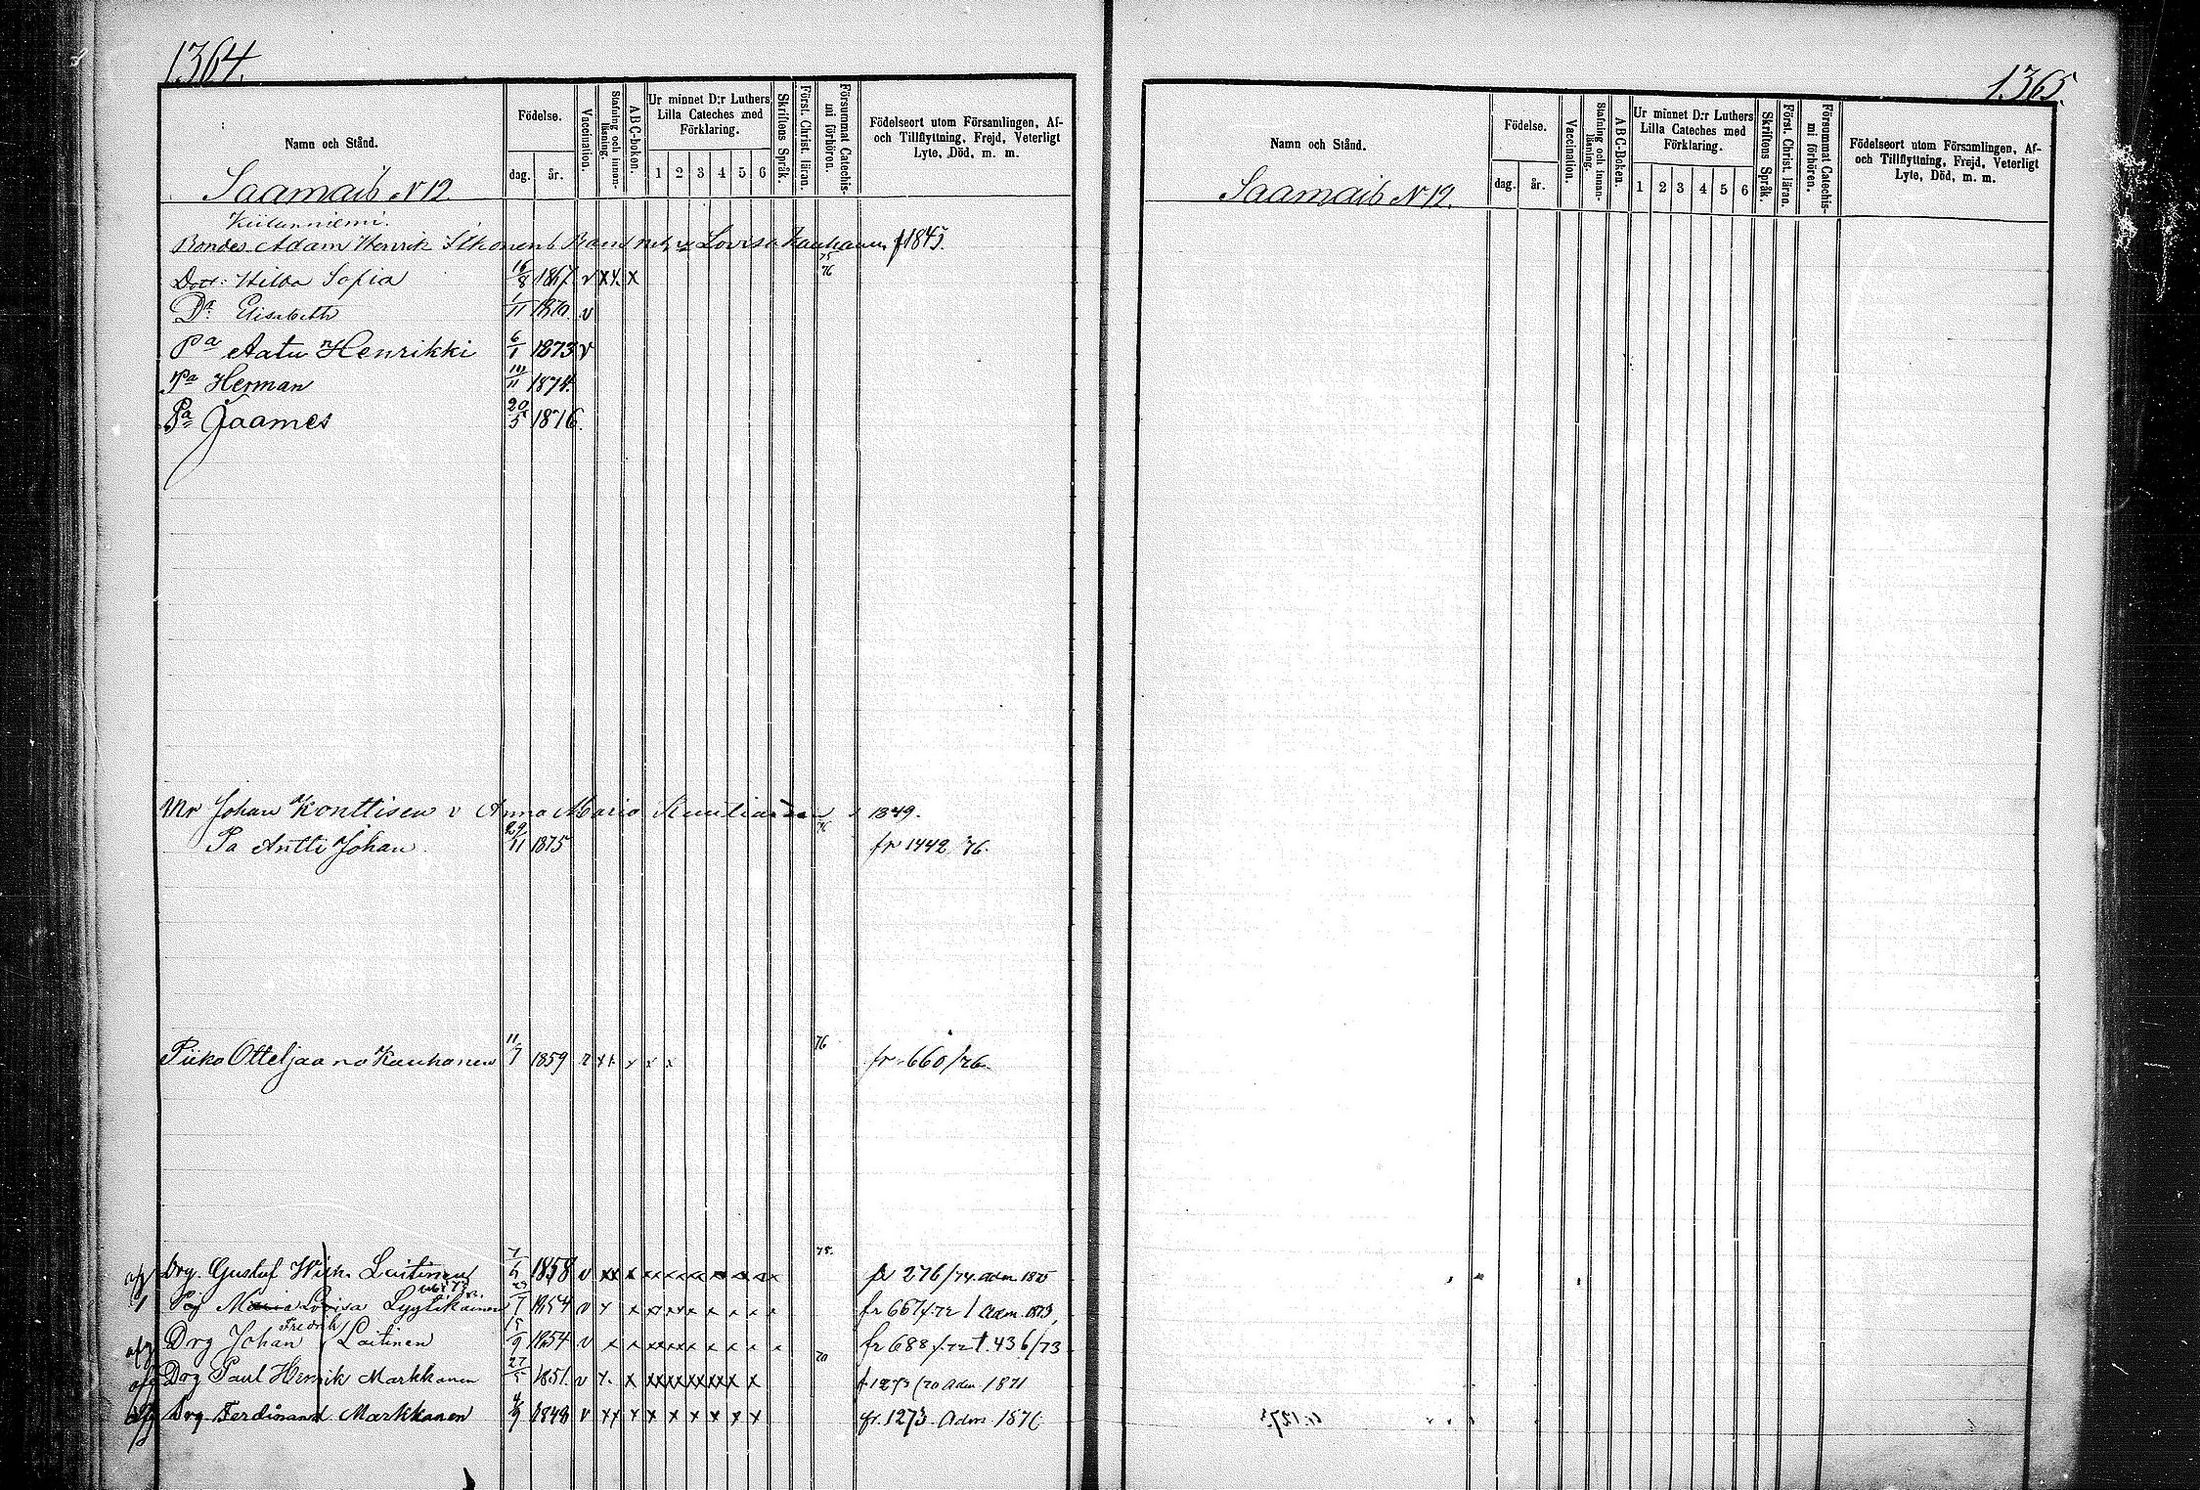 1364.
Namn och Stånd.
Födelse.
dag. år.
Vaccination.
Stafning och innanläsning.
A B C-boken.
Ur minnet D:r Luthers Lilla Cateches med Förklaring.
1 2 3 4 5 6
Skriftens Språk.
Först. Christ. läran.
Försummat Catechismi förhören.
Födelseort utom Församlingen, Af- och Tillflyttning, Frejd, Veterligt Lyte, Död, m. m.
Saamais N 12.
Kiilanniemi.
Bondes Adam Henrik Lovisa Kauhanen f 1845.
75
76
Dott: Hilda Sofia 16/8 1867. v x x. x
Dr. Elisabeth 1/11 1870. v
Pa Aatu Henrikki 6/1 1873 v
Pa Herman 10/11 1874.
Pa Jaames 20/5 1876.
Mr Johan Konttisen v Anna Maria 1849.
76
Pa Antti Johan. 29/11 1875 fr 1442 76.
Piika Otteljaana Kauhanen 11/7 1859 x x x x x 76 fr 660/76.
Drg. Gustaf Wilh. Laitinen 1858 v 75. fr 276/74. adm. 1875
Maria Lovisa Lyytikäinen 1854 v fr 667/72 Adm. 1873,
Drg Johan Fredrik Laitinen 15/9 1854 v fr 688/72 t. 436/73
Drg Paul Henrik Markkanen 27/5 1851. v 70 Adm 1871
Drg. Ferdinand Markkanen 4/9 1848 v x x x x x x x x x fr. 1273. Adm 1870
1365.
Namn och Stånd.
Födelse.
dag. år.
Vaccination.
Stafning och innanläsning.
A B C-Boken.
Ur minnet D:r Luthers Lilla Cateches med Förklaring.
1 2 3 4 5 6
Skriftens Språk.
Först. Christ. läran.
Försummat Catechismi förhören.
Födelseort utom Församlingen, Af- och Tillflyttning, Frejd, Veterligt Lyte, Död, m. m.
Saamais N 12.